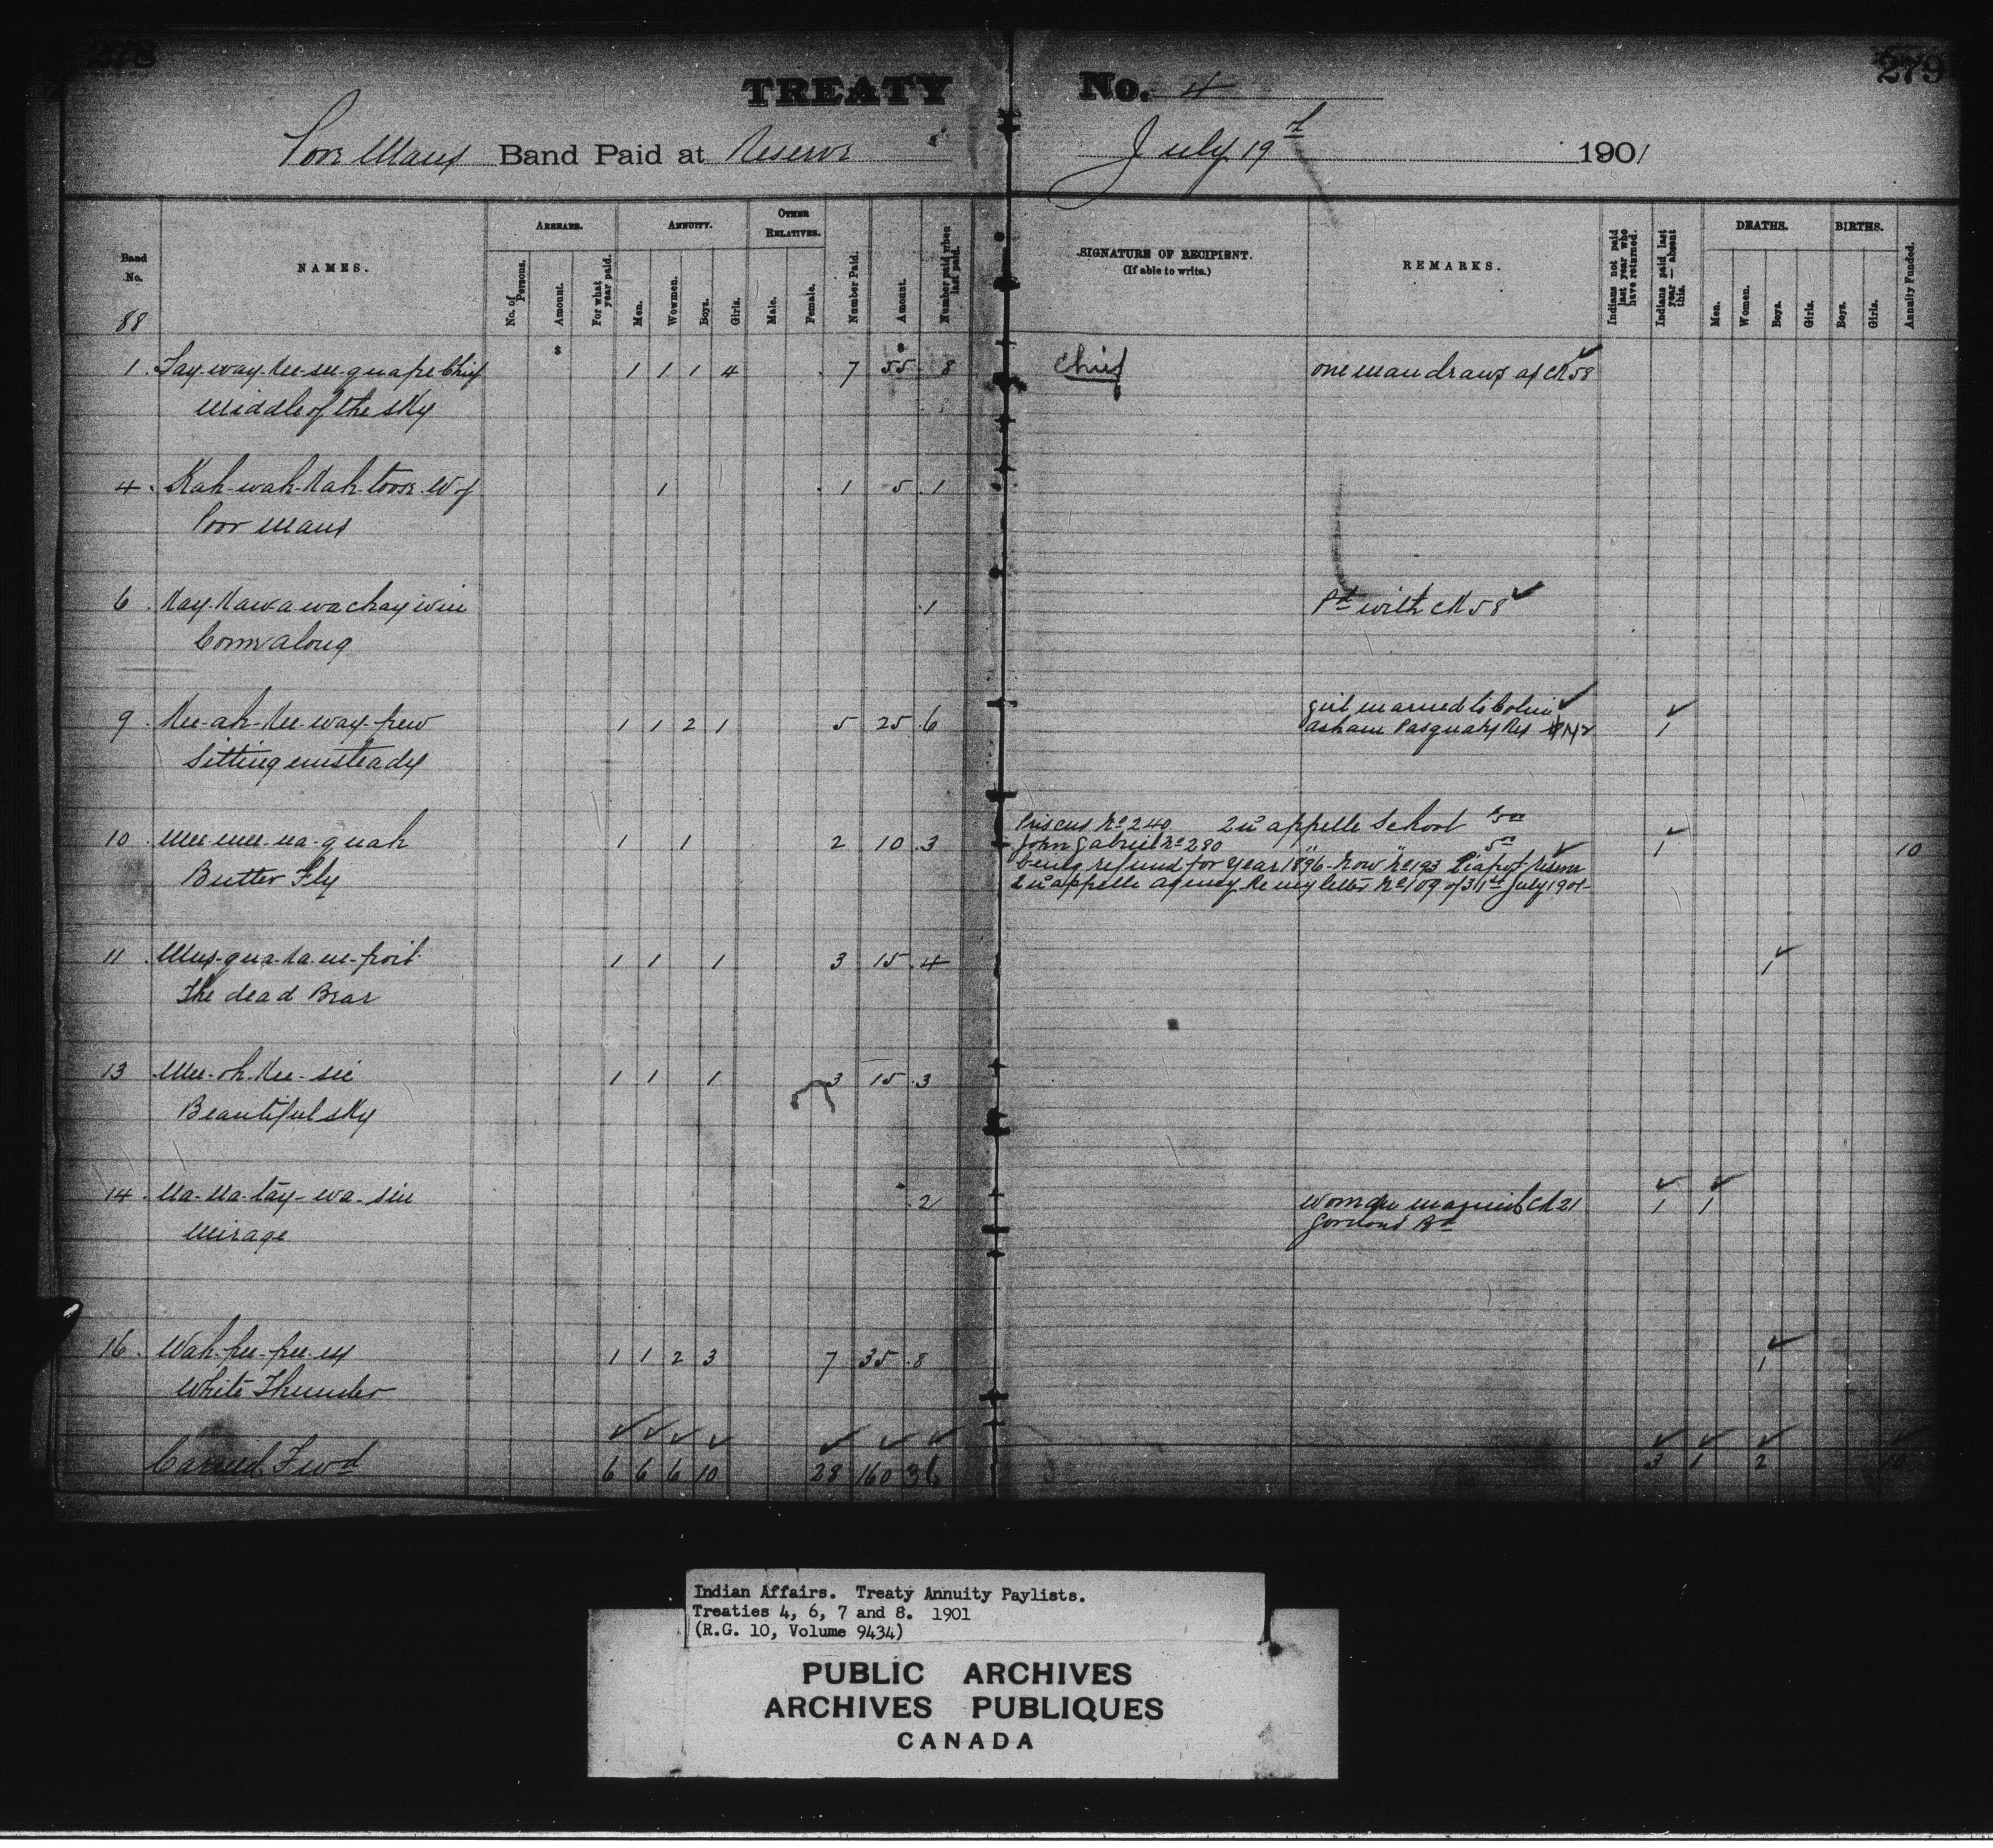 278
279
TREATY No. 4
Poor Mans Band Paid at Reserve July 19th 1901
Band No.
NAMES.
ARREARS.
No. of Persons.
Amount.
For what year paid.
ANNUITY.
Men.
Women.
Boys.
Girls.
OTHER RELATIVES.
Male.
Female.
Number Paid.
Amount.
Number paid when last paid.
SIGNATURE OF RECIPIENT.
(If able to write.)
REMARKS.
Indians not paid last year who have returned.
Indians paid last year — absent this.
DEATHS.
Men.
Women.
Boys.
Girls.
BIRTHS.
Boys.
Girls.
Annuity Funded.
88
$ $
1 Chief 1 1 1 4 7 55 8 Chief one man draws as CK 58
Middle of the sky
4 Kah-wah-Kah-toose W of 1 1 5 1
Poor Mans
6 1 Pd with CK 58
Come along
9 Kee-ah-Kee-way-pew 1 1 2 1 5 25 6 girl married to Colin
Sitting unsteady Asham Pasquahs Res 1
10 Mee-mee-na-quah 1 1 2 10 3 Priscus No 240 Qu'appelle School 5 00
John Gabriel No 280 " " 5 00 1 10
Butter Fly being refund for year 1896 - Now No 193 Piapot Reserve
Qu'appelle Agency Re my letter No 109 of 31st July 1901
11 1 1 1 3 15 4 1
The dead Bear
13 Mee-oh-Kee-sic 1 1 1 3 15 3
Beautiful sky
14 Na-Na-tay-wa-sin 2 woman married CK 21 1 1
Mirage Gordons Bd
16 Wah-pee-pee-es 1 1 2 3 7 35 8 1
White Thunder
Carried Fwd 6 6 6 10 28 160 36 3 1 2 10
Indian Affairs. Treaty Annuity Paylists.
Treaties 4, 6, 7 and 8. 1901
(R.G. 10, Volume 9434)
PUBLIC ARCHIVES
ARCHIVES PUBLIQUES
CANADA